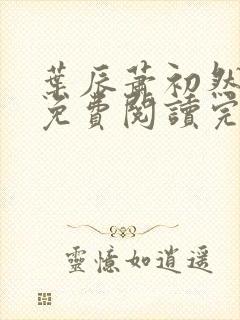 葉辰蕭初然
免費閱讀完
靈憶如逍遥